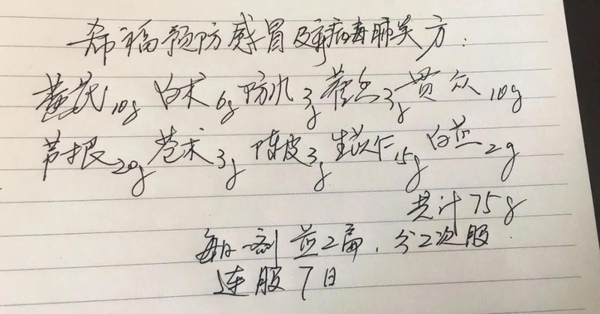 希福预防感冒及新病毒肺炎方:
黄芪10g 白术6g 防风3g 藿香3g 贯众10g
芦根20g 苍术3g 陈皮3g 生苡仁15g 白芷2g
共计75g
每日一剂 煎2遍,分2次服
连服7日